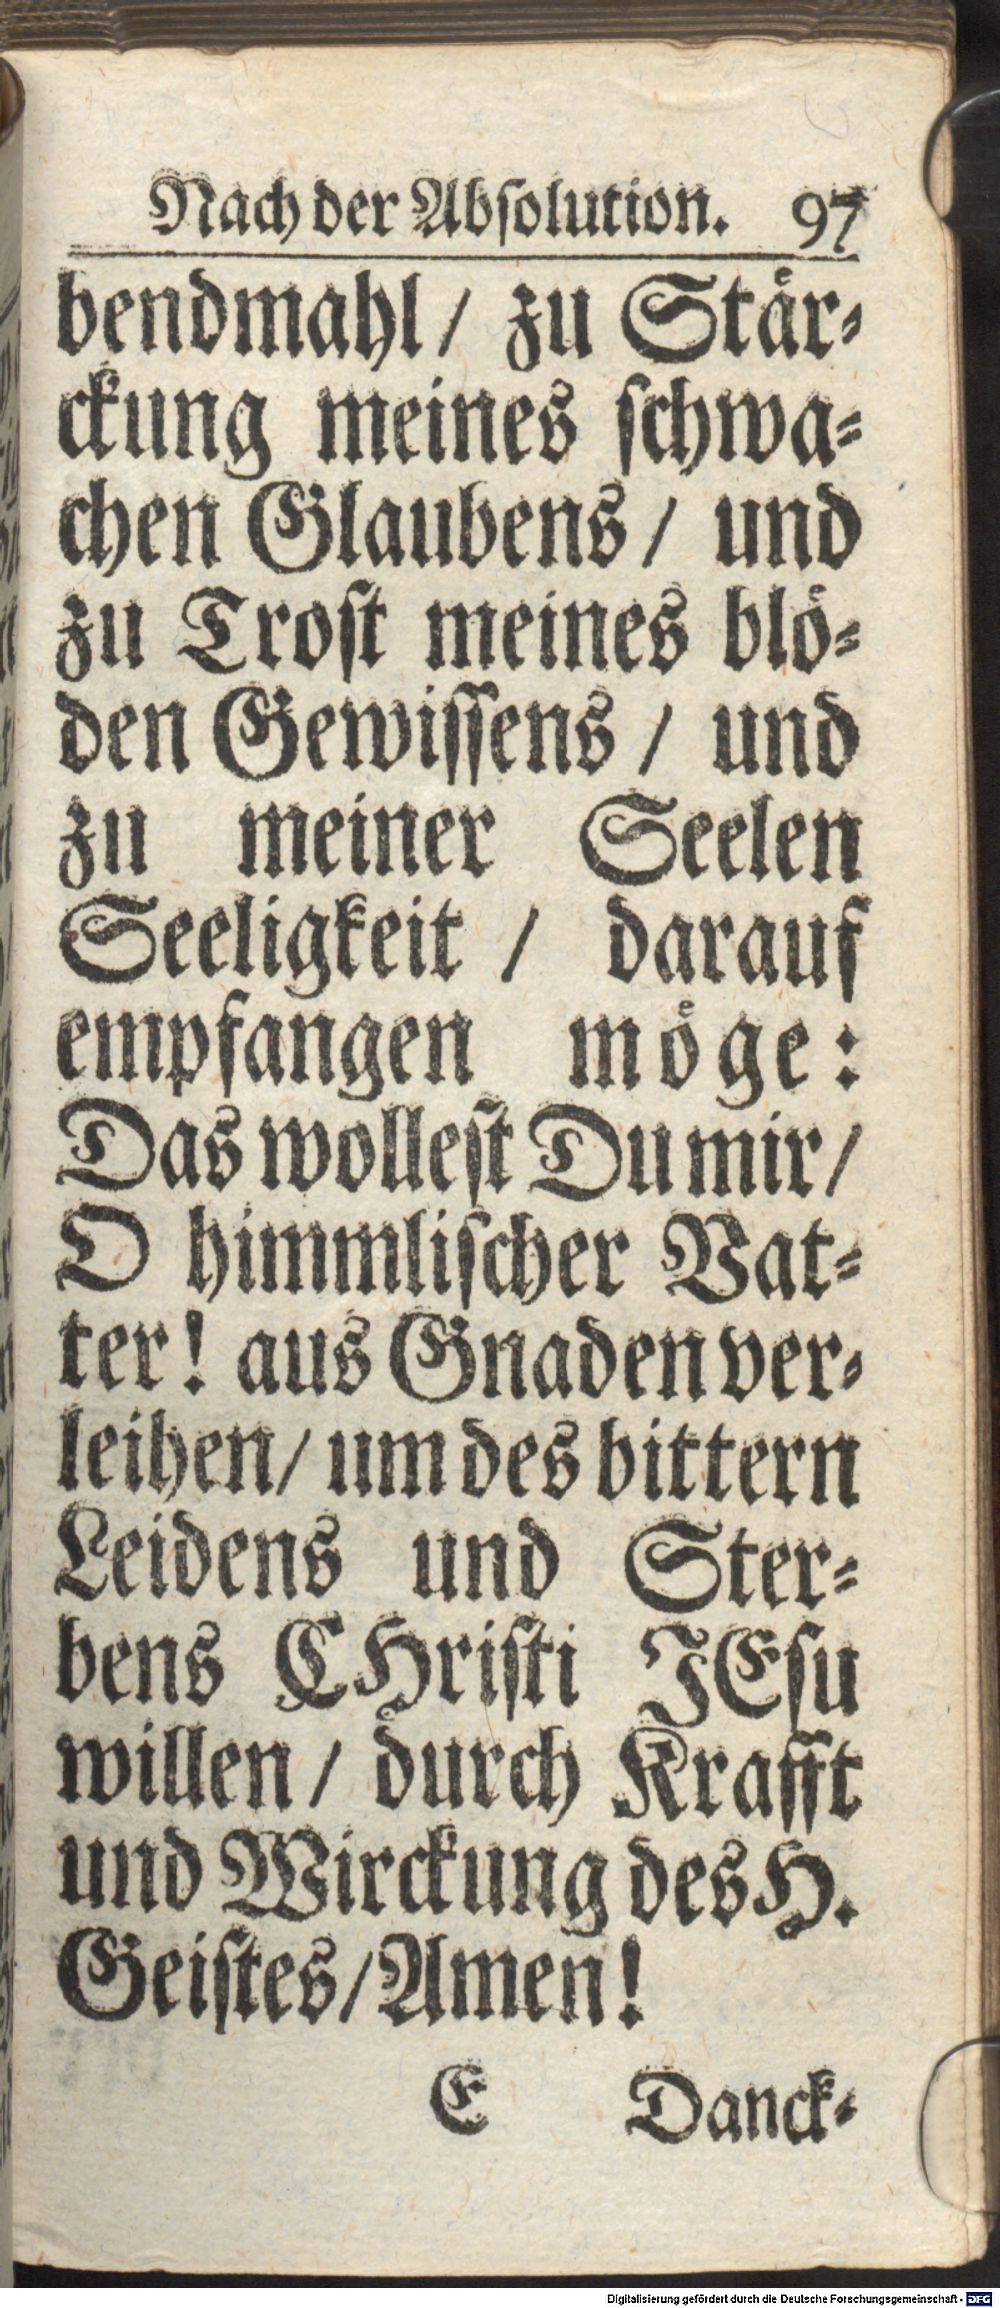 Nach der Absolution. 97
bendmahl / zu Står-
ckung meines schwa-
chen Glaubens / und
zu Trost meines blö-
den Gewissens / und
zu meiner Seelen
Seeligkeit / darauf
empfangen möge:
Das wollest Du mir /
O himmlischer Vat-
ter! aus Gnaden ver-
leihen / um des bittern
Leidens und Ster-
bens CHristi JEsu
willen / durch Krafft
und Wirckung des H.
Geistes / Amen!
E Danck-
Digitalisierung gefördert durch die Deutsche Forschungsgemeinschaft - DFG